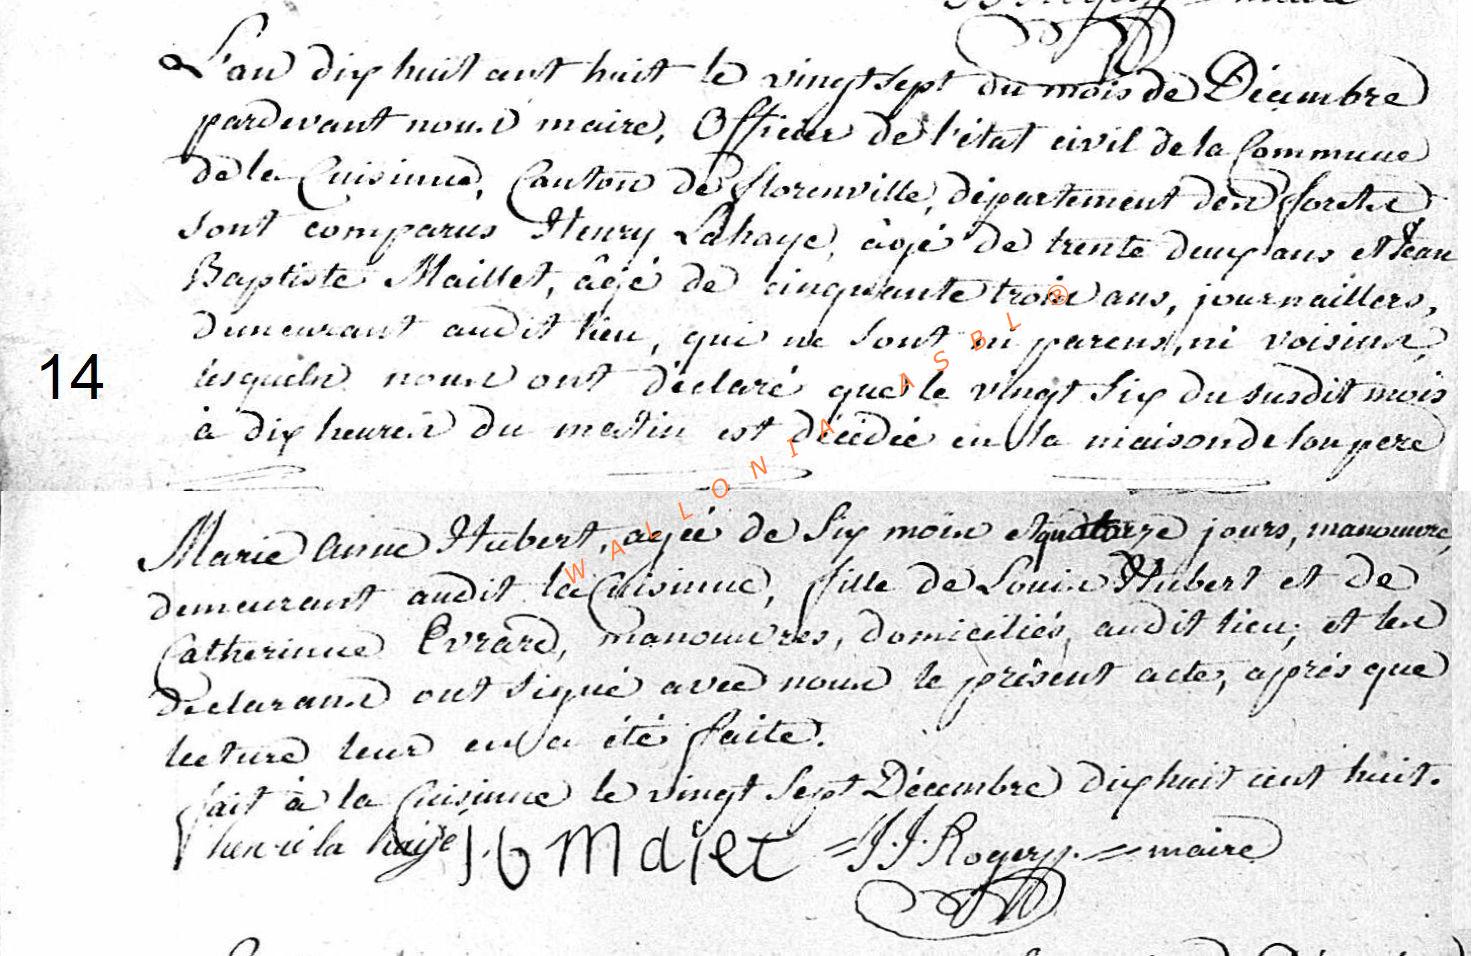 J J Rogery = maire
L'an dix huit cent huit le vingt sept du mois de Décembre
pardevant nous maire, Officier de l'état civil de la Commune
de la Cuisinne, Canton de florenville, département des forêts
sont comparus Henry Lahaye, âgé de trente deux ans et Jean
Baptiste Maillet, âgé de cinquante trois ans, journaillers,
demeurant audit lieu, qui ne sont ni parens, ni voisins,
lesquels nous ont déclaré que le vingt six du susdit mois
14
à dix heures du matin est décédée en la maison de son pere
Marie Anne Hubert, agée de six mois et quatorze jours, manouvre,
demeurant audit la Cuisinne, fille de Louis Hubert et de
Catherinne Evrard, manouvres, domiciliés, audit lieu; et les
declarans ont signé avec nous le présent acte, après que
lecture leur en a été faite.
fait à la Cuisinne le vingt sept Décembre dix huit cent huit.
henri la haye J b maiet = J. J. Rogery = maire
WALLONIA ASBL ®